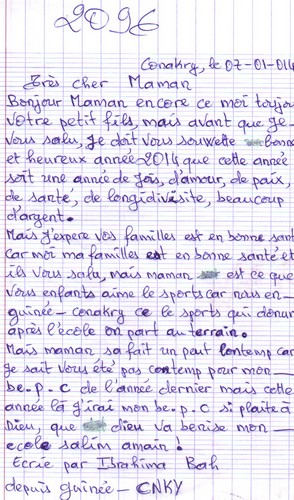 2096
Conakry, le 07-01-014
Très cher Maman
Bonjour Maman encore ce moi toujou
votre petit fils, mais avant que je
vous salu, je doit vous souwette Bonne
et heureux année-2014 que cette année
soit une année de Jois, d'amour, de paix,
de santé, de longidivisite, beaucoup
d'argent.
Mais J'espère vos familles est en bonne sant
car moi ma familles est en bonne santé et
ils vous salu, mais maman est ce que
vous enfants aime le sports car nous en
guinée-conakry ce le sports qui
après l'école on part au terrain.
Mais maman sa fait un peut lontemp car
je sait vous été pas contemp pour mon
be.p.c de l'année dernier mais cette
année là j'irai mon be.p.c si plaite à
Dieu, que dieu va benise mon
ecole salim amain!
Ecrie par Ibrahima Bah
depuis guinée-CNKY